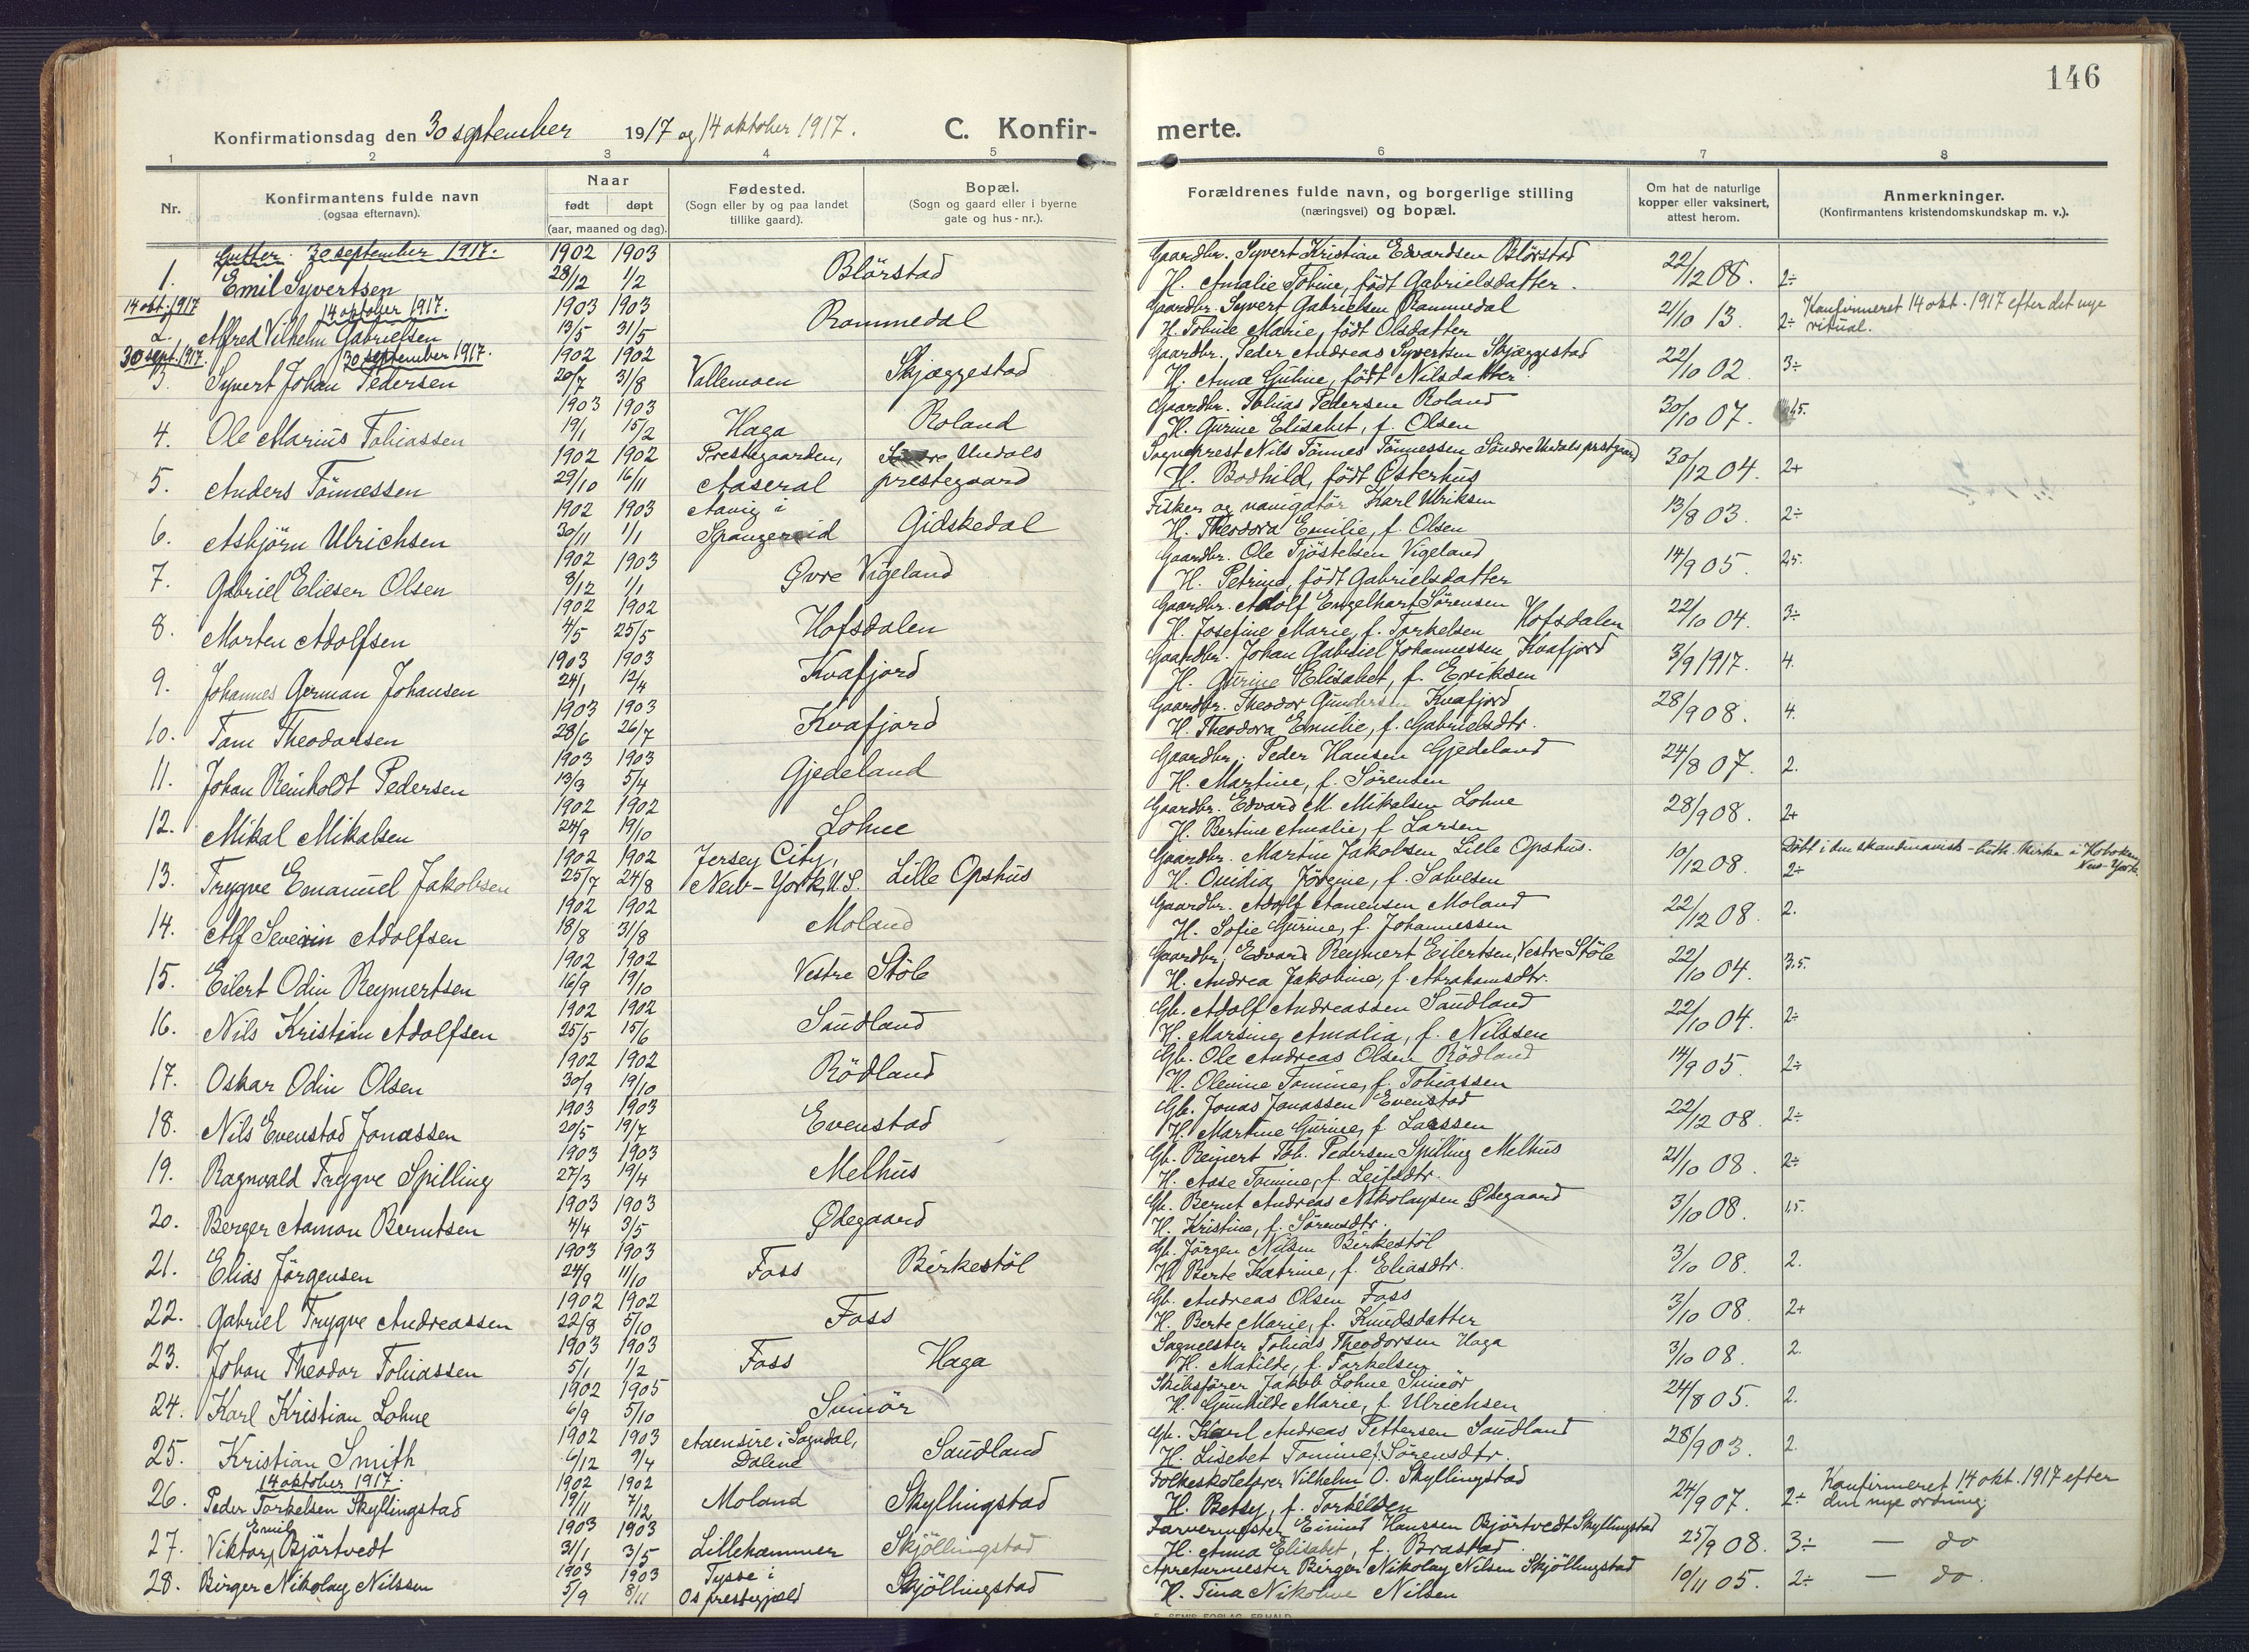 146
Konfirmationsdag den 30 september 1917 og 14 oktober 1917. C. Konfir- merte.
1 2 3 4 5 6 7 8
Nr.
Konfirmantens fulde navn
(ogsaa efternavn).
Naar
født døpt
(aar, maaned og dag).
Fødested.
(Sogn eller by og paa landet
tillike gaard).
Bopæl.
(Sogn og gaard eller i byerne
gate og hus-nr.).
Forældrenes fulde navn, og borgerlige stilling
(næringsvei) og bopæl.
Om hat de naturlige
kopper eller vaksinert,
attest herom.
Anmerkninger.
(Konfirmantens kristendomskundskap m. v.).
Gutter. 30 september 1917. 1902 1903 Gaardbr. Syvert Kristian Edvardsen Blörstad
1. Emil Syvertsen 28/12 1/2 Blörstad H. Amalie Tobine, födt Gabrielsdatter. 22/12 08. 2÷
14 okt. 1917 14 oktober 1917. 1903 1903 Gaardbr. Syvert Gabrielsen Rommedal
2. Alfred Vilhelm Gabrielsen 13/5 31/5 Rommedal H. Tobine Marie, födt Olsdatter 21/10 13. 2÷ Konfirmeret 14 okt. 1917 efter det nye
ritual.
30 sept. 1917. 30 september 1917. 1902 1902 Gaardbr. Peder Andreas Syvertsen Skjæggestad
3. Syvert Johan Pedersen 20/7 31/8 Vallemoen Skjæggestad H. Anna Guline, födt Nilsdatter. 22/10 02. 3÷
1903 1903 Gaardbr. Tobias Pedersen Roland
4. Ole Marius Tobiassen 19/1 15/2 Haga Roland H. Gurine Elisabet, f. Olsen 30/10 07.
1902 1902 Prestegaarden, Söndre Undals Sogneprest Nils Tönnes Tönnessen Söndre Undals prstgaard
5. Anders Tönnessen 29/10 16/11 Aaseral prestegaard H. Bodhild, födt Østerhus 30/12 04. 2+
1902 1903 Aavig i Fisker og navigatör Karl Ulriksen
6. Asbjörn Ulrichsen 30/11 1/1 Spangereid Gidskedal H. Theodora Emilie, f. Olsen 13/8 03. 2÷
1902 1903 Gaardbr. Ole Tjöstelsen Vigeland
7. Gabriel Elieser Olsen 8/12 1/1 Øvre Vigeland H. Petrine, födt Gabrielsdatter 14/9 05. 2,5.
1902 1902 Gaardbr. Adolf Engelhart Sörensen
8. Morten Adolfsen 4/5 25/5 Hofsdalen H. Josefine Marie, f. Torkelsen Hofsdalen 22/10 04. 3÷
1903 1903 Gaardbr. Johan Gabriel Johannessen Kvafjord
9. Johannes German Johansen 24/1 12/4 Kvafjord H. Gurine Elisabet, f. Eriksen 3/9 1917. 4.
1903 1903 Gaardbr. Theodor Gundersen Kvafjord
10. Tom Theodorsen 28/6 26/7 Kvafjord H. Theodora Emilie, f. Gabrielsdtr. 28/9 08. 4.
1903 1903 Gaardbr. Peder Hansen Gjedeland
11. Johan Reinholdt Pedersen 13/3 5/4 Gjedeland H. Martine, f. Sörensen 24/8 07. 2.
1902 1902 Gaardbr. Edvard M. Mikalsen Lohne
12. Mikal Mikalsen 24/9 19/10 Lohne H. Bertine Amalie, f. Larsen 28/9 08. 2+
1902 1902 Jersey City, Gaardbr. Martin Jakobsen Lille Opshus. Döbt i den skandinavisk-luth. kirke i Hoboken,
New-York.
13. Trygve Emanuel Jakobsen 25/7 24/8 New-York, U.S. Lille Opshus H. Ouidia Jörgine, f. Salvesen 10/12 08. 2÷
1902 1902 Gaardbr. Adolf Aanensen Moland
14. Alf Severin Adolfsen 18/8 31/8 Moland H. Sofie Gurine, f. Johannessen 22/12 08. 2.
1902 1902 Gaardbr. Edvard Reymert Eilertsen, Vestre Stöle
15. Eilert Odin Reymertsen 16/9 19/10 Vestre Stöle H. Andrea Jakobine, f. Abrahamsdtr. 22/10 04. 3,5.
1902 1902 Gb. Adolf Andreassen Saudland
16. Nils Kristian Adolfsen 25/5 15/6 Saudland H. Marsine Amalia, f. Nilssen 22/10 04. 2÷
1902 1902 Gb. Ole Andreas Olsen Rödland
17. Oskar Odin Olsen 30/9 19/10 Rödland H. Olevine Tomine, f. Tobiassen 14/9 05. 2÷
1903 1903 Gb. Jonas Jonassen Evenstad
18. Nils Evenstad Jonassen 20/5 19/7 Evenstad H. Martine Gurine, f. Larssen 22/12 08. 2÷
1903 1903 Gb. Reinert Tob. Pedersen Spilling Melhus
19. Ragnvald Trygve Spilling 27/3 19/4 Melhus H. Aase Tomine, f. Leifsdtr. 21/10 08. 2÷
1903 1903 Gb. Bernt Andreas Nikolaysen Ødegaard
20. Berger Aamon Berntsen 4/4 3/5 Ødegaard H. Kristine, f. Sörensdtr. 3/10 08. 1,5.
1903 1903 Gb. Jörgen Nilsen Birkestöl
21. Elias Jörgensen 24/9 11/10 Foss Birkestöl H. Berte Katrine, f. Eliasdtr. 3/10 08. 2.
1902 1902 Gb. Andreas Olsen Foss
22. Gabriel Trygve Andreassen 22/8 5/10 Foss H. Berte Marie, f. Knudsdatter 3/10 08. 2+
1903 1903 Tobias Theodorsen Haga
23. Johan Theodor Tobiassen 5/1 1/2 Foss Haga H. Matilde, f. Torkelsen 3/10 08. 2.
1902 1905 Skibsförer Jakob Lohne Svinör
24. Karl Kristian Lohne 6/9 5/10 Svinör H. Gunhilde Marie, f. Ulrichsen 24/8 05. 2.
1902 1903 Aaensire i Sogndal, Gb. Karl Andreas Pettersen Saudland
25. Kristian Smith 6/12 9/4 Dalene Saudland H. Lisebet Tomine, f. Sörensdtr. 28/9 03. 2.
14 oktober 1917. 1902 1902 Folkeskolelærer Vilhelm O. Skyllingstad Konfirmeret 14 okt. 1917 efter
26. Peder Torkelsen Skyllingstad 19/11 7/12 Moland Skyllingstad H. Betsy, f. Torkildsen 24/9 07. 2÷ den nye ordning.
Emil 1903 1903 Farvermester Einind Hanssen Björtvedt Skyllingstad
27. Viktor Björtvedt 31/1 3/5 Lillehammer Skjöllingstad H. Anna Elisabet, f. Brastad. 25/9 08. 3÷ — do
1903 1903 Tysse i Apreturmester Birger Nikolay Nilsen Skjöllingstad
28. Birger Nikolay Nilssen 5/9 8/11 Os prestegjæld Skjöllingstad H. Tina Nikoline Nilsen 10/11 05. 2÷ — do.